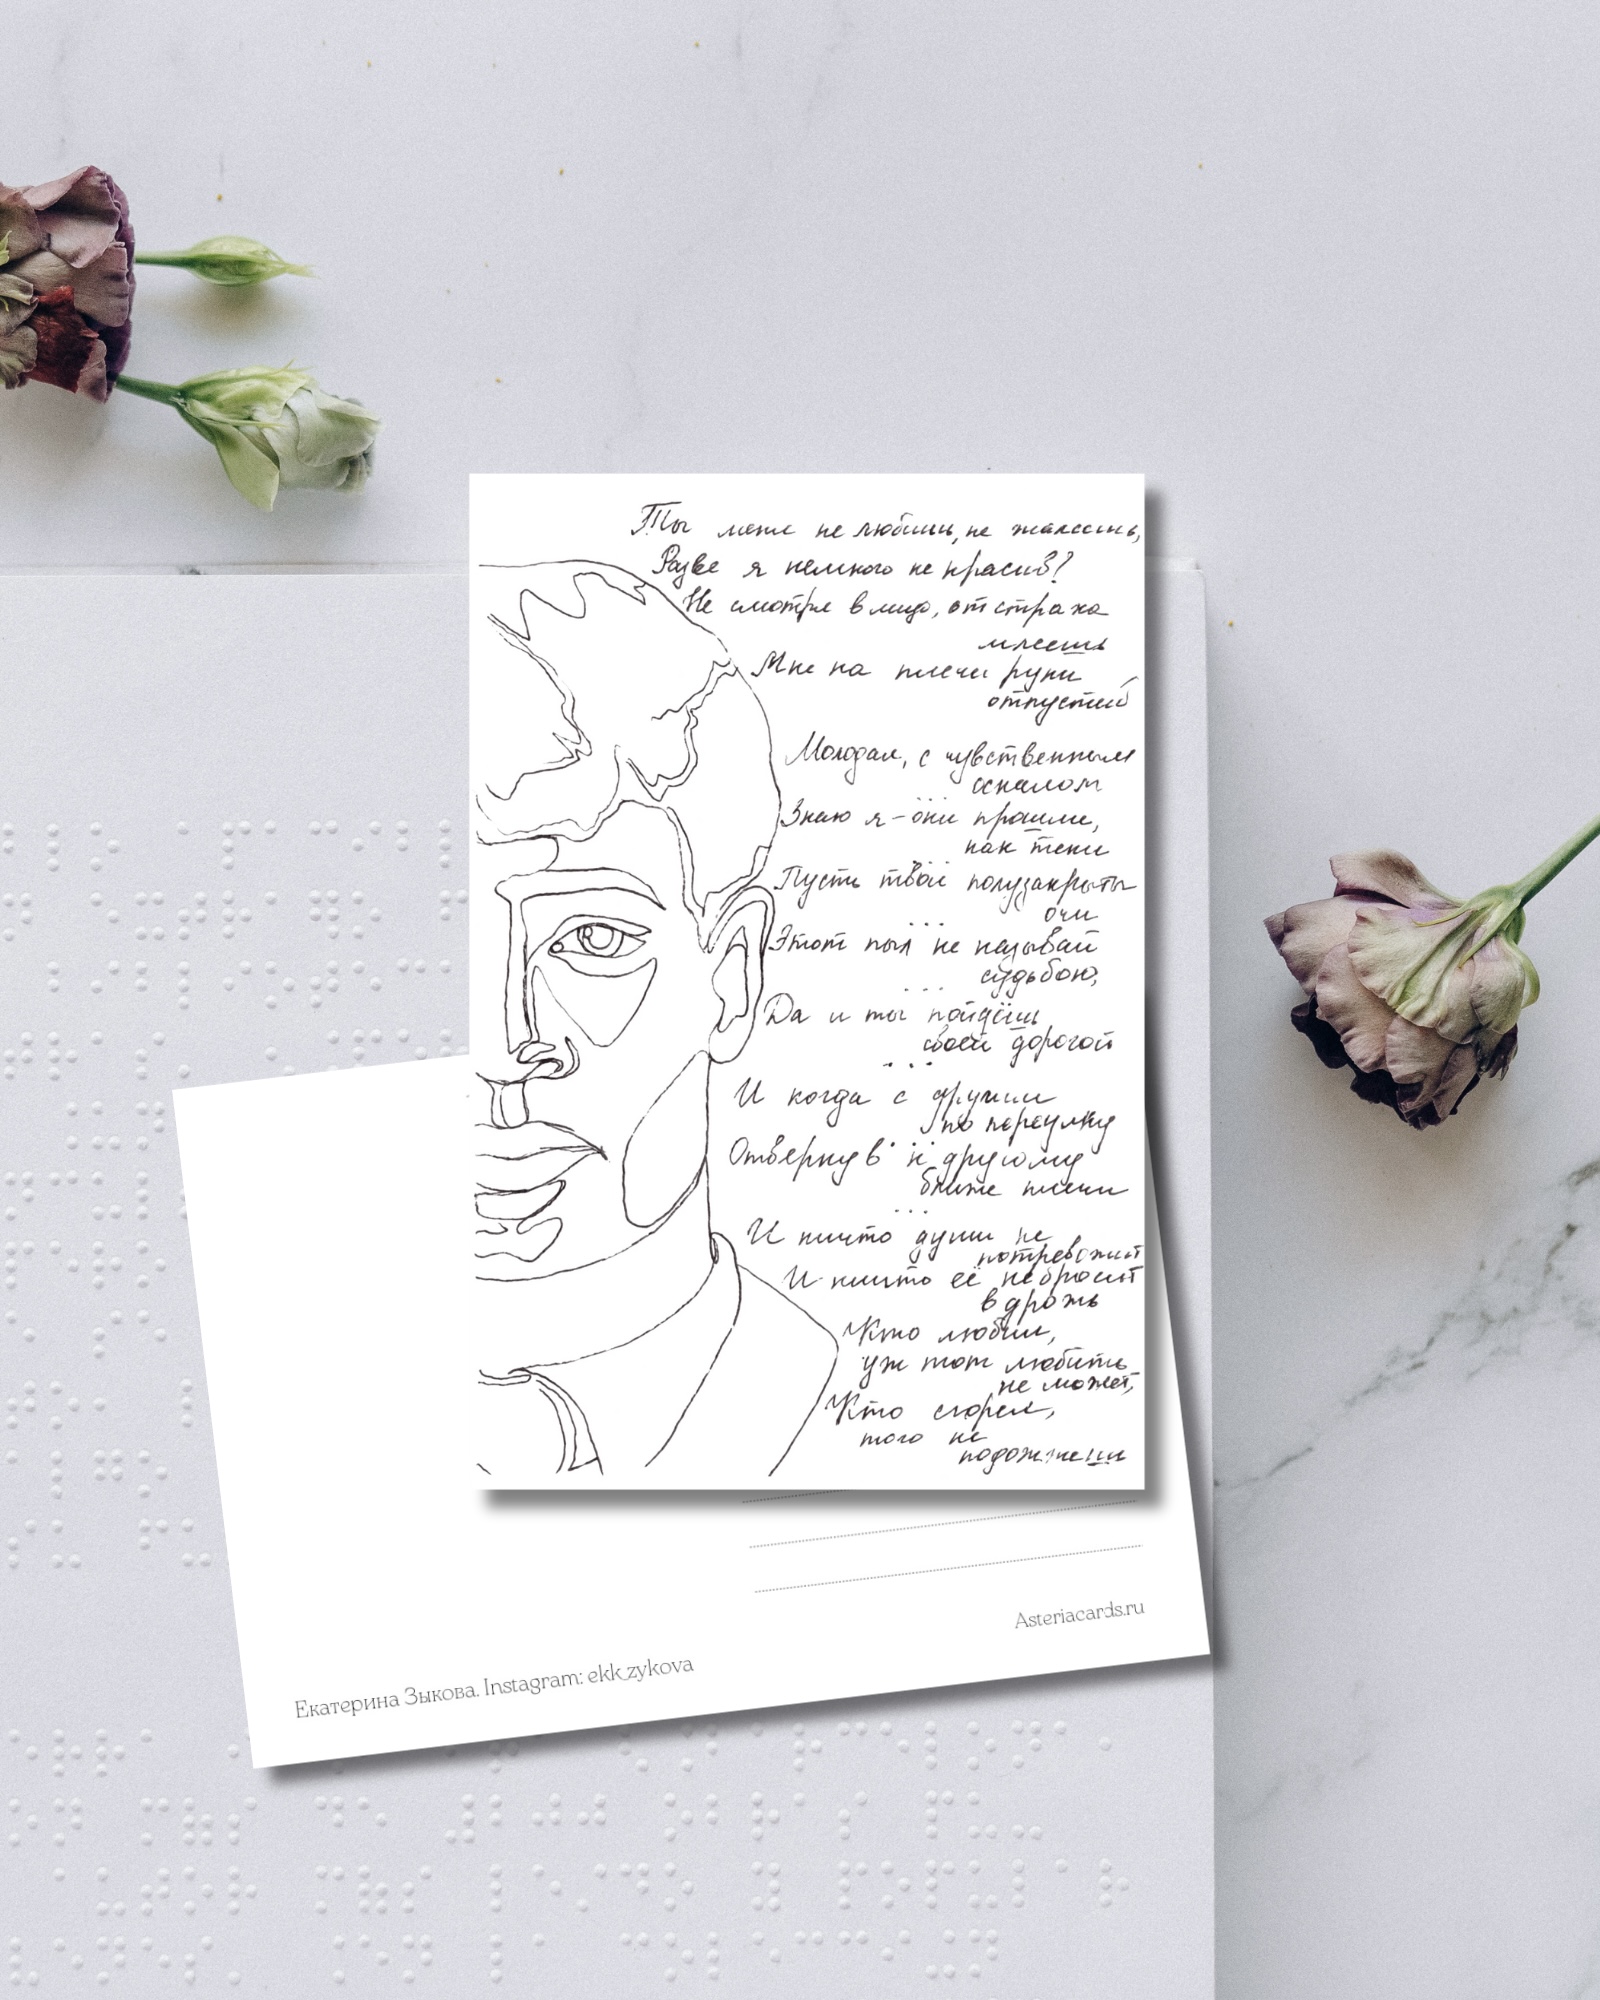 Ты меня не любишь, не жалеешь,
Разве я немного не красив?
Не смотря в лицо, от страха
млеешь
Мне на плечи руки
отпустив
Молодая, с чувственным
оскалом
...
Знаю я – они прошли,
как тени
...
Пусть твои полузакрыты
очи
...
Этот пыл не называй
судьбою,
...
Да и ты пойдёшь
своей дорогой
...
И когда с другим
по переулку
...
Отвернув к другому
ближе плечи
...
И ничто души не
потревожит
И ничто её не бросит
в дрожь
Кто любил,
уж тот любить
не может,
Кто сгорел,
того не
подожжешь
Asteriacards.ru
Екатерина Зыкова. Instagram: ekk_zykova